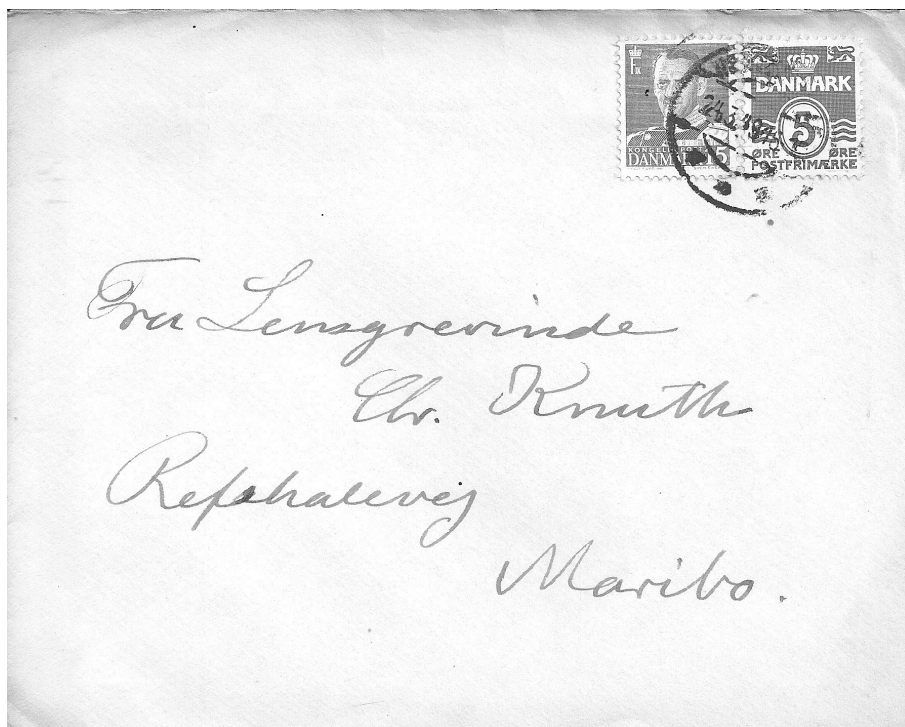 KONGELIG POST
DANMARK 15
DANMARK
5
ØRE ØRE
POSTFRIMÆRKE
Fru Lensgrevinde
Chr. Knuth
Refshalevej
Maribo.